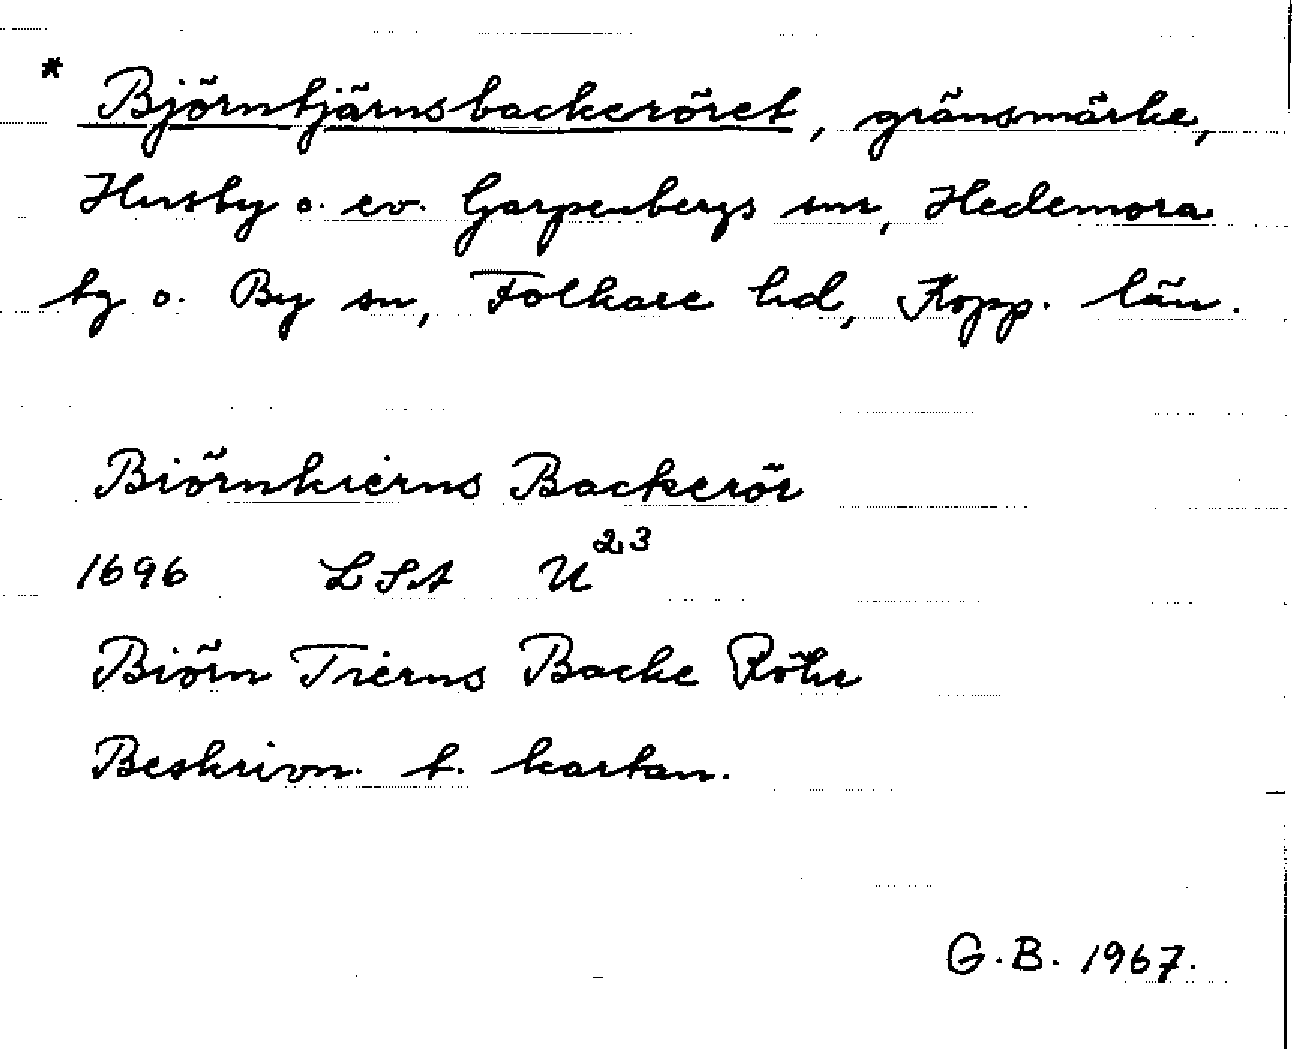 * Björntjärnsbackeröret, gränsmärke,
Husby o. ev. Garpenbergs snr, Hedemora
tg o. By sn, Folkare hd, Kopp. län.
Biörnkierns Backerör
1696 LSA U 23
Biörn Tierns Backe Röhr
Beskrivn. t. kartan.
G.B. 1967.